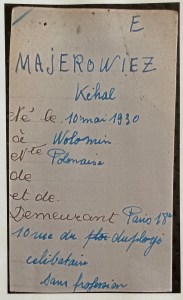 E
MAJEROWIEZ
Kihal
Né le 10 mai 1930
à Wolomin
Nté Polonaise
de
et de
Demeurant Paris 18e
10 rue du
célibataire
sans profession